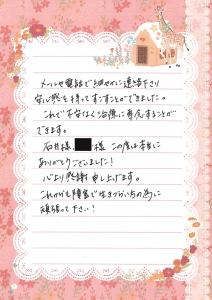 メールや電話で細やかに連絡下さり
安心感を持ってすごすことができました。
これで不安なく治療に専念することが
できます。
石井様、様 この度は本当に
ありがとうございました!
心より感謝申し上げます。
これからも障害で生きづらい方の為に
頑張って下さい!